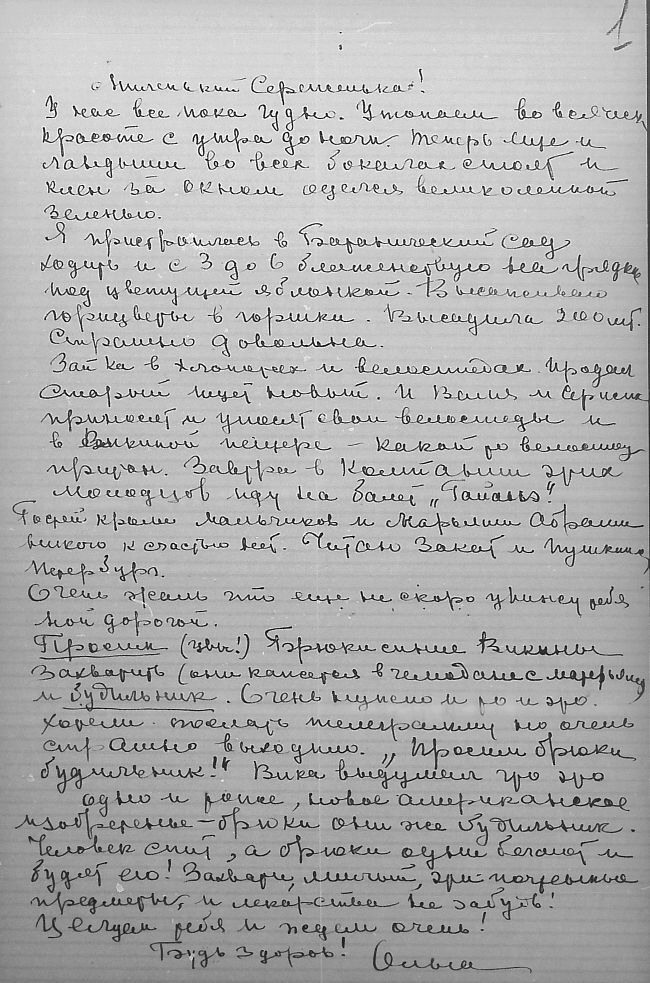 1
Миленький Сереженька!
У нас все пока чудно. Утопаем во всяческ
красоте с утра до ночи. Теперь еще и
ландыши во всех бокалах стоят и
клен за окном оделся великолепной
зеленью.
Я пристроилась в Ботанический сад
ходить и с 3 до 6 блаженствую на грядке
под цветущей яблонкой. Высаживаю
горицветы в горшки. Высадила 200 шт.
Страшно довольна.
Зайка в хлопотах и велосипедах. Продал
старый ищет новый. И Ваня и Сережа
приносят и уносят свои велосипеды и
в Викиной пещере – какой то велосипед
притон. Завтра в компании этих
молодцов иду на балет „Гаянэ".
Гостей кроме мальчиков и Марьяши Абрам
никого к счастью нет. Читаю Закат и Пушкинск
Петербург.
Очень жаль что еще не скоро увижу тебя
мой дорогой.
Просим (увы!) Брюки синие Викины
захватить (они кажется в чемодане с матерьялом)
и будильник. Очень нужно и то и это.
Хотели послать телеграмму но очень
страшно выходило. „Просим брюки
будильник!" Вика выдумал что это
одно и тоже, новое американское
изобретенье – брюки они же будильник.
Человек спит, а брюки одни бегают и
будят его! Захвати, милый, эти почтенные
предметы, и лекарства не забудь!
Целуем тебя и ждем очень!
Будь здоров! Ольга